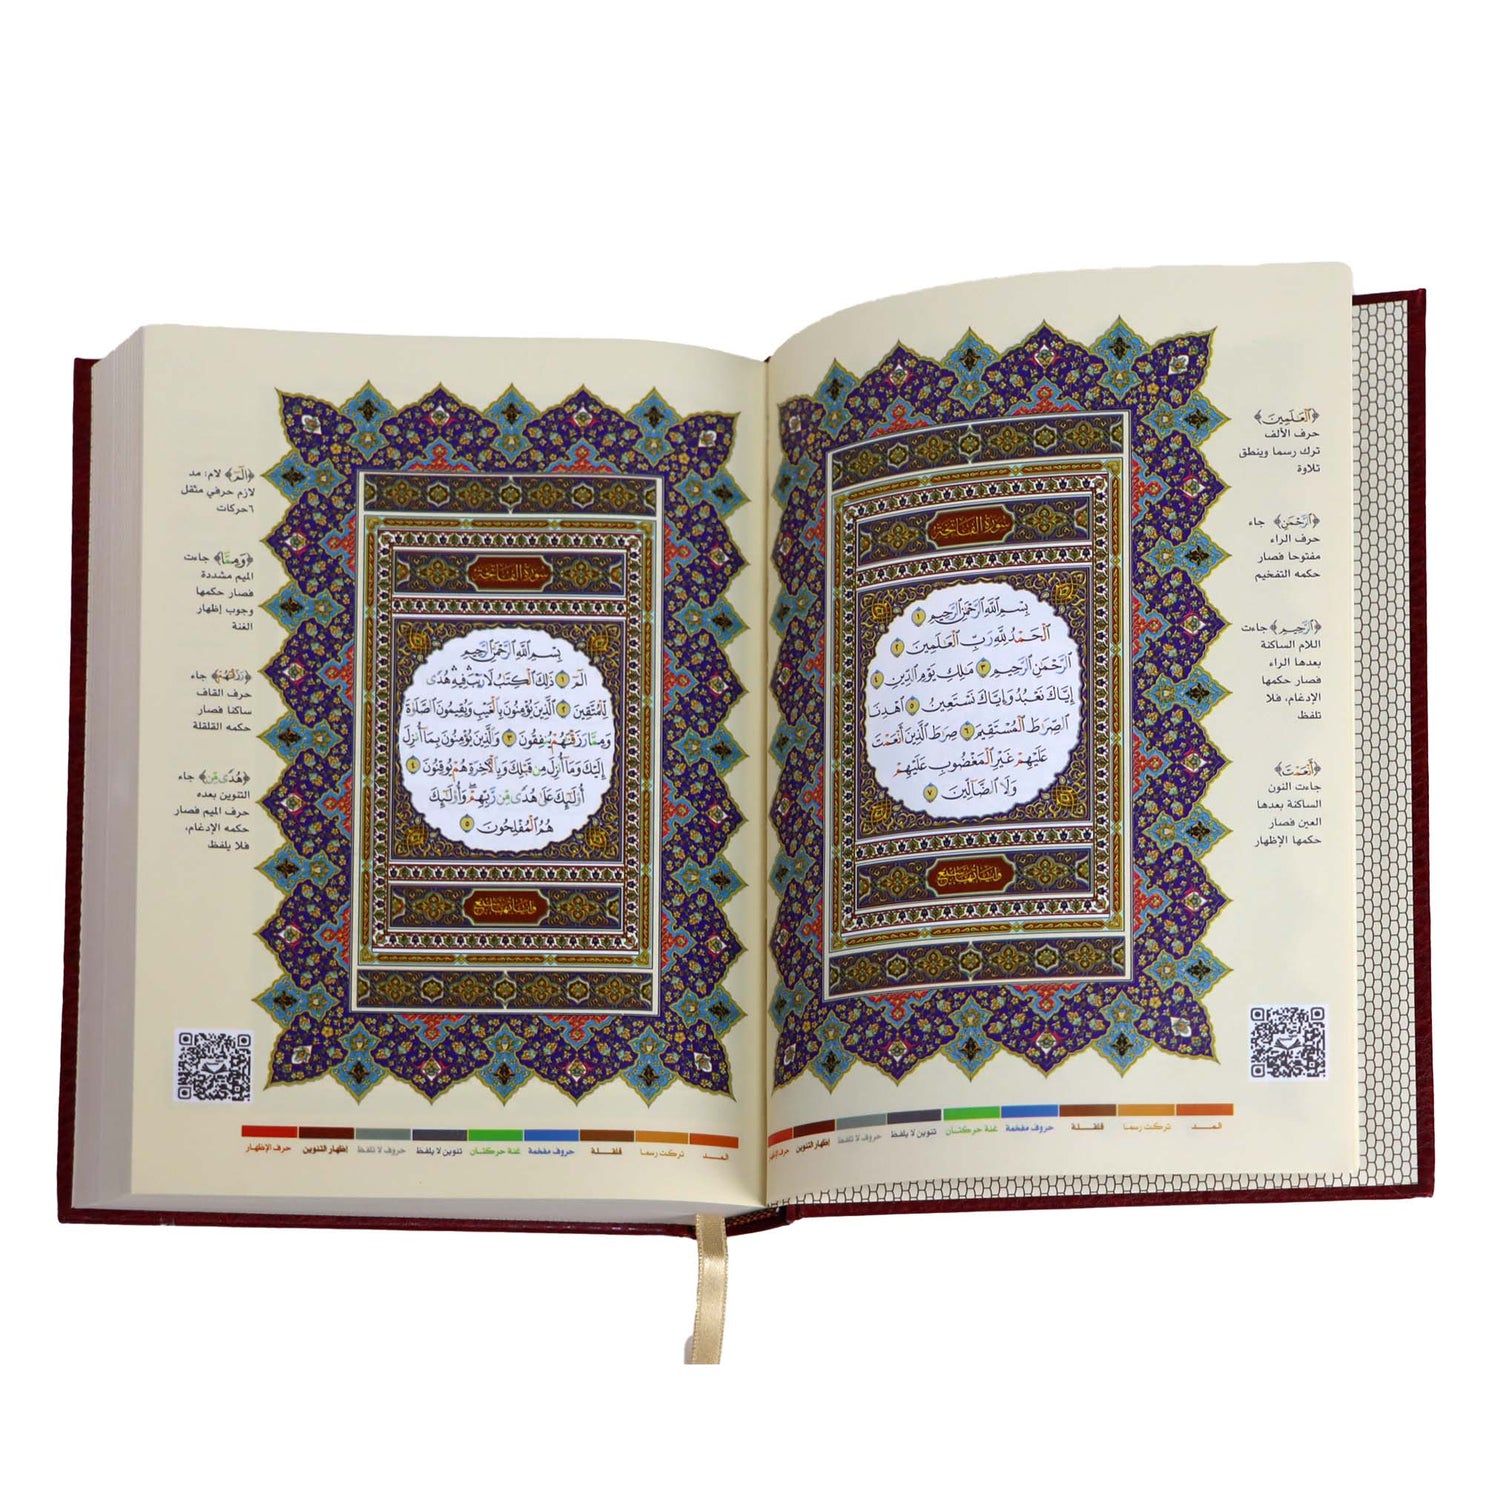 سورة الفاتحة
بِسْمِ ٱللَّهِ ٱلرَّحْمَٰنِ ٱلرَّحِيمِ ١
ٱلْحَمْدُ لِلَّهِ رَبِّ ٱلْعَٰلَمِينَ ٢
ٱلرَّحْمَٰنِ ٱلرَّحِيمِ ٣ مَٰلِكِ يَوْمِ ٱلدِّينِ ٤
إِيَّاكَ نَعْبُدُ وَإِيَّاكَ نَسْتَعِينُ ٥ ٱهْدِنَا
ٱلصِّرَٰطَ ٱلْمُسْتَقِيمَ ٦ صِرَٰطَ ٱلَّذِينَ أَنْعَمْتَ
عَلَيْهِمْ غَيْرِ ٱلْمَغْضُوبِ عَلَيْهِمْ
وَلَا ٱلضَّآلِّينَ ٧
وآياتها سبع
﴿ٱلْعَٰلَمِينَ﴾
حرف الألف
ترك رسما وينطق
تلاوة
﴿ٱلرَّحْمَٰنِ﴾ جاء
حرف الراء
مفتوحا فصار
حكمه التفخيم
﴿ٱلرَّحِيمِ﴾ جاءت
اللام الساكنة
بعدها الراء
فصار حكمها
الإدغام، فلا
تلفظ
﴿أَنْعَمْتَ﴾
جاءت النون
الساكنة بعدها
العين فصار
حكمها الإظهار
المد تركت رسما قلقلة حروف مفخمة غنة حركتان تنوين لا يلفظ حروف لا تلفظ إظهار التنوين
سورة الفاتحة
بِسْمِ ٱللَّهِ ٱلرَّحْمَٰنِ ٱلرَّحِيمِ
الٓمٓ ١ ذَٰلِكَ ٱلْكِتَٰبُ لَا رَيْبَ ۛ فِيهِ ۛ هُدًى
لِّلْمُتَّقِينَ ٢ ٱلَّذِينَ يُؤْمِنُونَ بِٱلْغَيْبِ وَيُقِيمُونَ ٱلصَّلَوٰةَ
وَمِمَّا رَزَقْنَٰهُمْ يُنفِقُونَ ٣ وَٱلَّذِينَ يُؤْمِنُونَ بِمَآ أُنزِلَ
إِلَيْكَ وَمَآ أُنزِلَ مِن قَبْلِكَ وَبِٱلْءَاخِرَةِ هُمْ يُوقِنُونَ ٤
أُو۟لَٰٓئِكَ عَلَىٰ هُدًى مِّن رَّبِّهِمْ ۖ وَأُو۟لَٰٓئِكَ
هُمُ ٱلْمُفْلِحُونَ ٥
وآياتها سبع
﴿الٓمٓ﴾ لام: مد
لازم حرفي مثقل
٦حركات
﴿وَمِمَّا﴾ جاءت
الميم مشددة
فصار حكمها
وجوب إظهار
الغنة
﴿رَزَقْنَٰهُمْ﴾ جاء
حرف القاف
ساكنا فصار
حكمه القلقلة
﴿هُدًى مِّن﴾ جاء
التنوين بعده
حرف الميم فصار
حكمه الإدغام،
فلا يلفظ
المد تركت رسما قلقلة حروف مفخمة غنة حركتان تنوين لا يلفظ حروف لا تلفظ إظهار التنوين حرف الإظهار